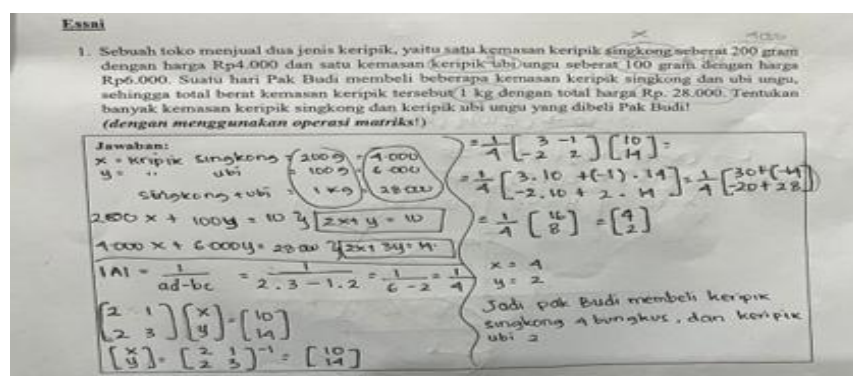 Essai
x
1. Sebuah toko menjual dua jenis keripik, yaitu satu kemasan keripik singkong seberat 200 gram
dengan harga Rp4.000 dan satu kemasan keripik ubi ungu seberat 100 gram dengan harga
Rp6.000. Suatu hari Pak Budi membeli beberapa kemasan keripik singkong dan ubi ungu,
sehingga total berat kemasan keripik tersebut 1 kg dengan total harga Rp. 28.000. Tentukan
banyak kemasan keripik singkong dan keripik ubi ungu yang dibeli Pak Budi!
(dengan menggunakan operasi matriks!)
Jawaban:
x = kripik singkong = 200 g = 4.000
y = " ubi = 100 g = 6.000
singkong + ubi = 1 kg = 28.000
200 x + 100 y = 10 } 2x + y = 10
4.000 x + 6.000 y = 28.000 } 2x + 3y = 14
|A| = 1/ad-bc = 1/2.3 - 1.2 = 1/6-2 = 1/4
[2 1 / 2 3] [x / y] = [10 / 14]
[x / y] = [2 1 / 2 3]⁻¹ = [10 / 14]
= 1/4 [3 -1 / -2 2] [10 / 14] =
= 1/4 [3.10 + (-1).14 / -2.10 + 2.14] = 1/4 [30+(-14) / -20+28]
= 1/4 [16 / 8] = [4 / 2]
x = 4
y = 2
Jadi pak Budi membeli keripik
singkong 4 bungkus, dan keripik
ubi 2